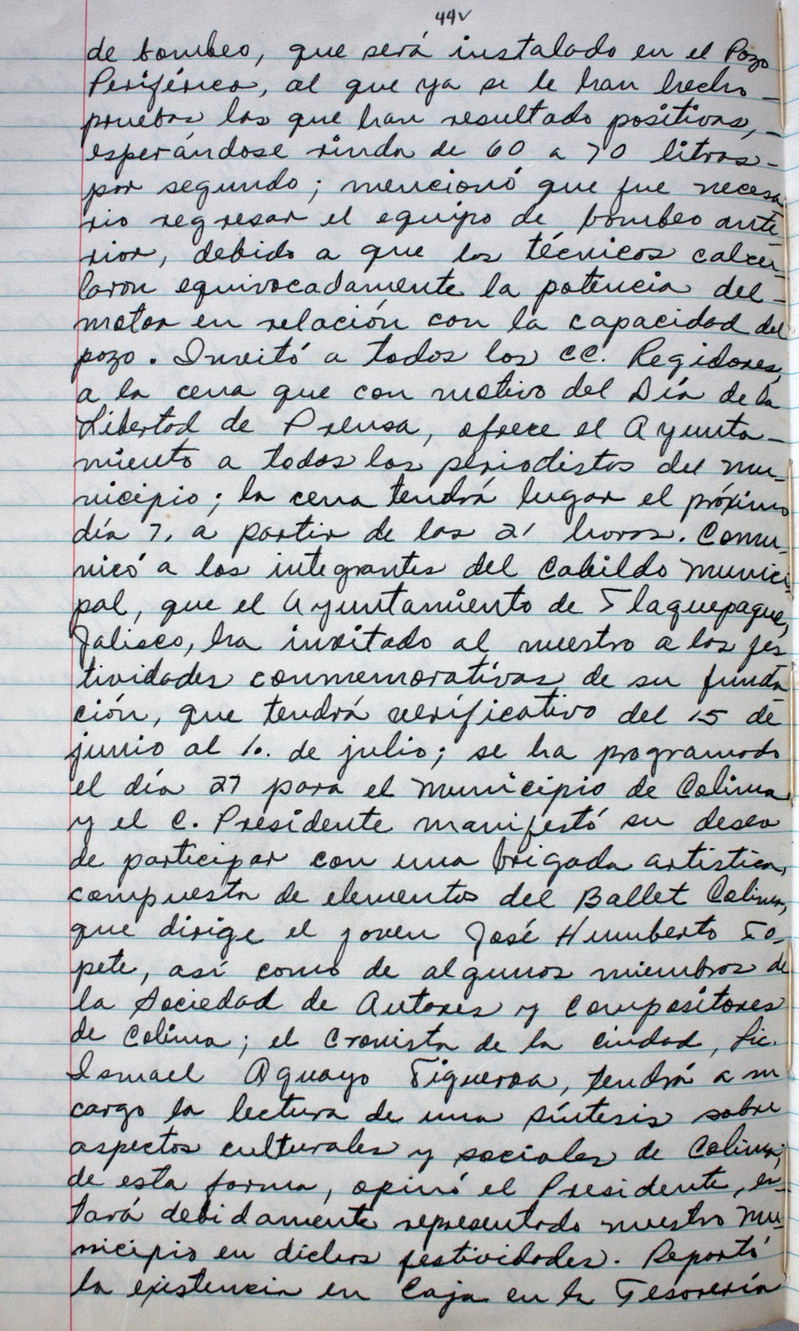 44v
de bombeo, que será instalado en el Pozo
Periférico, al que ya se le han hecho -
pruebas las que han resultado positivas, -
esperándose rinda de 60 a 70 litros -
por segundo; mencionó que fue necesa
rio regresar el equipo de bombeo ante
rior, debido a que los técnicos calcu-
laron equivocadamente la potencia del -
motor en relación con la capacidad del
pozo. Invitó a todos los CC. Regidores,
a la cena que con motivo del Día de la
Libertad de Prensa, ofrece el Ayunta-
miento a todos los periodistas del mu-
nicipio; la cena tendrá lugar el próximo
día 7, a partir de las 21 horas. Comu-
nicó a los integrantes del Cabildo Munici-
pal, que el Ayuntamiento de Tlaquepaque,
Jalisco, ha invitado al nuestro a las fes
tividades conmemorativas de su funda
ción, que tendrá verificativo del 15 de
junio al 1o. de julio; se ha programado
el día 27 para el Municipio de Colima
y el C. Presidente manifestó su deseo
de participar con una brigada artística,
compuesta de elementos del Ballet Colima,
que dirige el joven José Humberto To-
pete, así como de algunos miembros de
la Sociedad de Autores y Compositores
de Colima; el Cronista de la Ciudad, Lic.
Ismael Aguayo Figueroa, tendrá a su
cargo la lectura de una síntesis sobre
aspectos culturales y sociales de Colima;
de esta forma, opinó el Presidente, es-
tará debidamente representado nuestro Mu-
nicipio en dichas festividades. Reportó
la existencia en Caja en la Tesorería